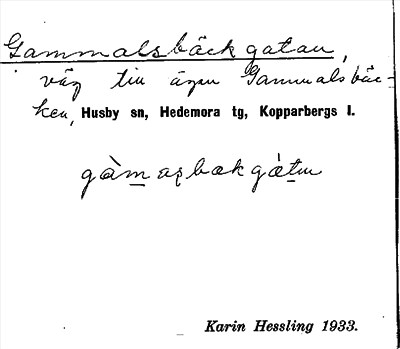 Gammalsbäckgatan,
väg till ägan Gammalsbäc-
ken, Husby sn, Hedemora tg, Kopparbergs l.
gàmasbækgàtɯ
Karin Hessling 1933.